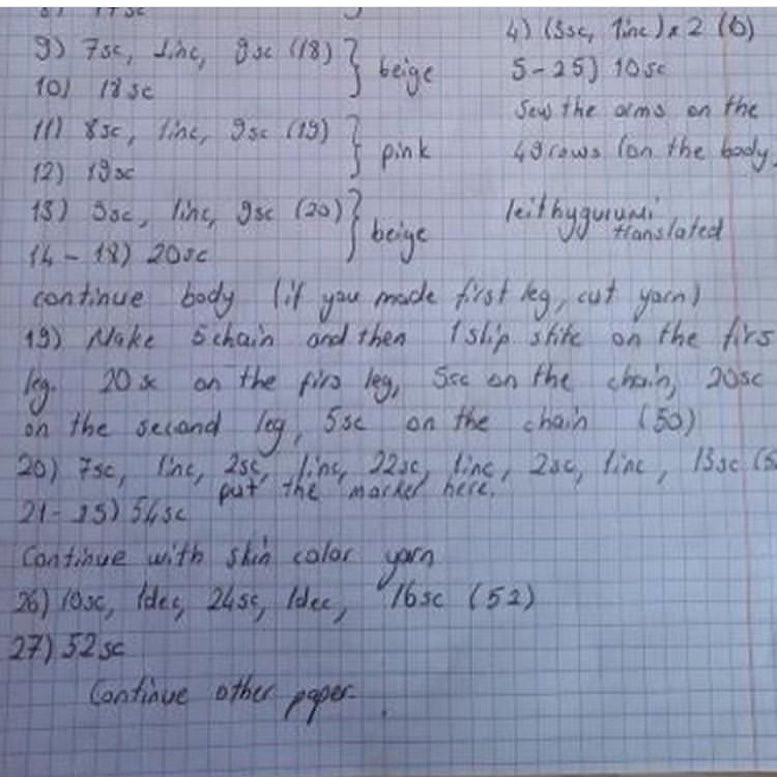 8) 17sc
9) 7sc, 1inc, 9sc (18) } beige
10) 18sc
11) 8sc, 1inc, 9sc (19) } pink
12) 19sc
13) 9sc, 1inc, 9sc (20) } beige
14 - 18) 20sc
4) (3sc, 1inc) x 2 (10)
5 - 25) 10sc
Sew the arms on the
49 rows (on the body
leithygurumi
translated
continue body (if you made first leg, cut yarn)
19) Make 5 chain and then 1 slip stitc on the firs
leg. 20 sc on the firs leg, 5sc on the chain, 20sc
on the second leg, 5sc on the chain (50)
20) 7sc, 1inc, 2sc, 1inc, 22sc, 1inc, 2sc, 1inc, 13sc (5
put the marker here.
21 - 25) 54sc
Continue with skin color yarn
26) 10sc, 1dec, 24sc, 1dec, 16sc (52)
27) 52sc
Continue other paper.